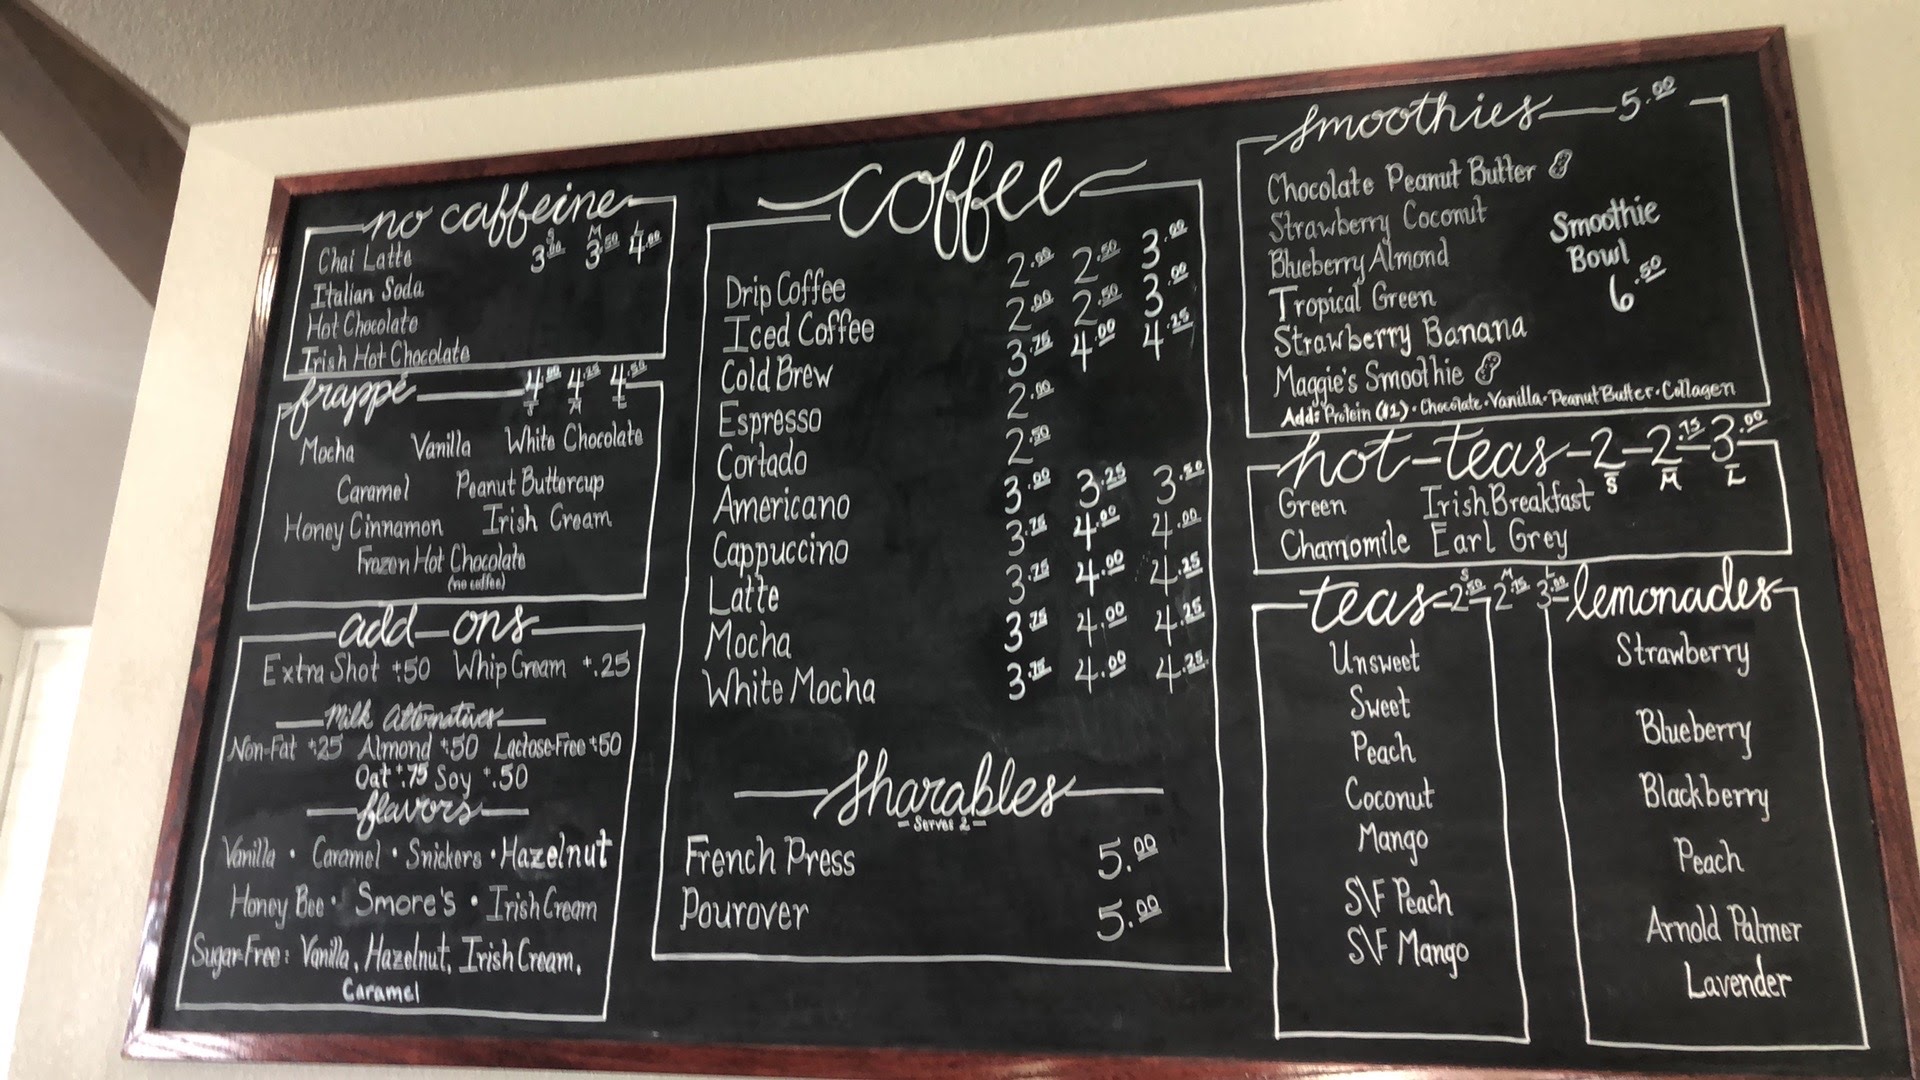 no caffeine
S M L
3.00 3.50 4.00
Chai Latte
Italian Soda
Hot Chocolate
Irish Hot Chocolate
frappé 4.00 4.25 4.50
S M L
Mocha Vanilla White Chocolate
Caramel Peanut Buttercup
Honey Cinnamon Irish Cream
Frozen Hot Chocolate
(no coffee)
add-ons
Extra Shot +.50 Whip Cream +.25
Milk Alternatives
Non-Fat +.25 Almond +.50 Lactose-Free +.50
Oat +.75 Soy +.50
flavors
Vanilla • Caramel • Snickers • Hazelnut
Honey Bee • Smore's • Irish Cream
Sugar-Free: Vanilla, Hazelnut, Irish Cream,
Caramel
coffee
Drip Coffee 2.00 2.50 3.00
Iced Coffee 2.00 2.50 3.00
Cold Brew 3.75 4.00 4.25
Espresso 2.00
Cortado 2.50
Americano 3.00 3.25 3.50
Cappuccino 3.75 4.00 4.00
Latte 3.75 4.00 4.25
Mocha 3.75 4.00 4.25
White Mocha 3.75 4.00 4.25
sharables
- Serves 2 -
French Press 5.00
Pourover 5.00
smoothies 5.00
Chocolate Peanut Butter
Strawberry Coconut
Blueberry Almond
Tropical Green
Strawberry Banana
Maggie's Smoothie
Smoothie
Bowl
6.50
Add: Protein ($1) • Chocolate • Vanilla • Peanut Butter • Collagen
hot-teas-2-2.75-3.00
S M L
Green Irish Breakfast
Chamomile Earl Grey
teas
S M L
2.50 2.75 3.00
Unsweet
Sweet
Peach
Coconut
Mango
S\F Peach
S\F Mango
lemonades
Strawberry
Blueberry
Blackberry
Peach
Arnold Palmer
Lavender